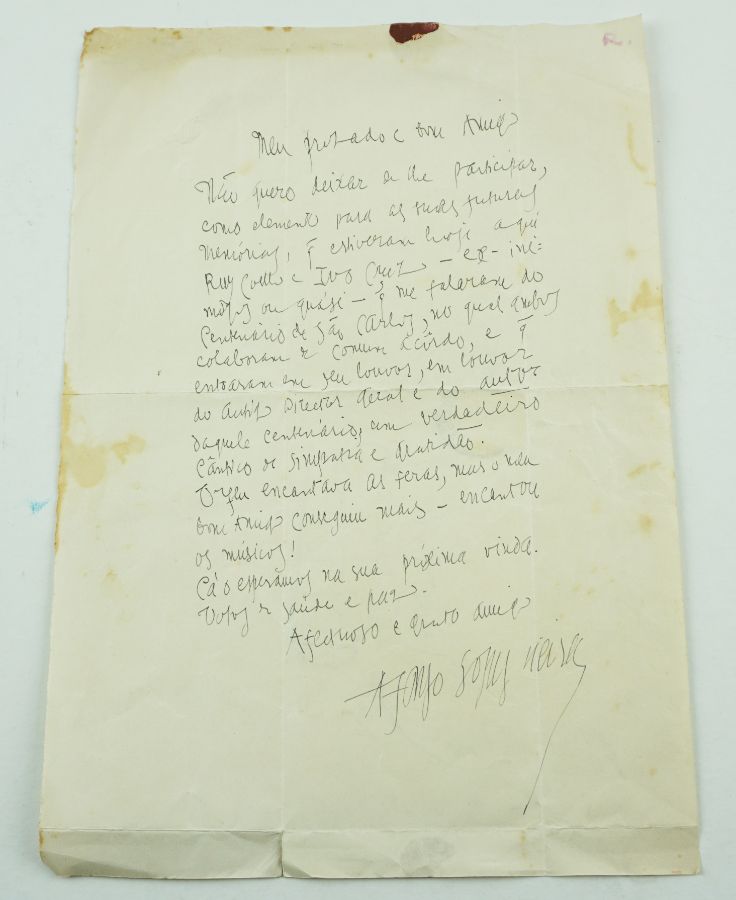 Meu presado e bom Amigo
Não quero deixar de lhe participar,
como elemento para as suas futuras
Memórias, q̃ estiveram hoje aqui
Ruy Coelho e Ivo Cruz – ex-ini=
migos ou quási – q̃ me falaram do
Centenário de São Carlos, no qual ambos
colaboram de comum acôrdo, e q̃
entoaram em seu louvor, em louvor
do antigo Director Geral e do autor
daquele centenário, um verdadeiro
Cântico de simpatia e gratidão.
Orfeu encantava as feras, mas o meu
bom Amigo conseguiu mais – encantou
os músicos!
Cá o esperamos na sua próxima vinda.
Votos de saúde e paz.
Afectuoso e grato amigo
Afonso Lopes Vieira